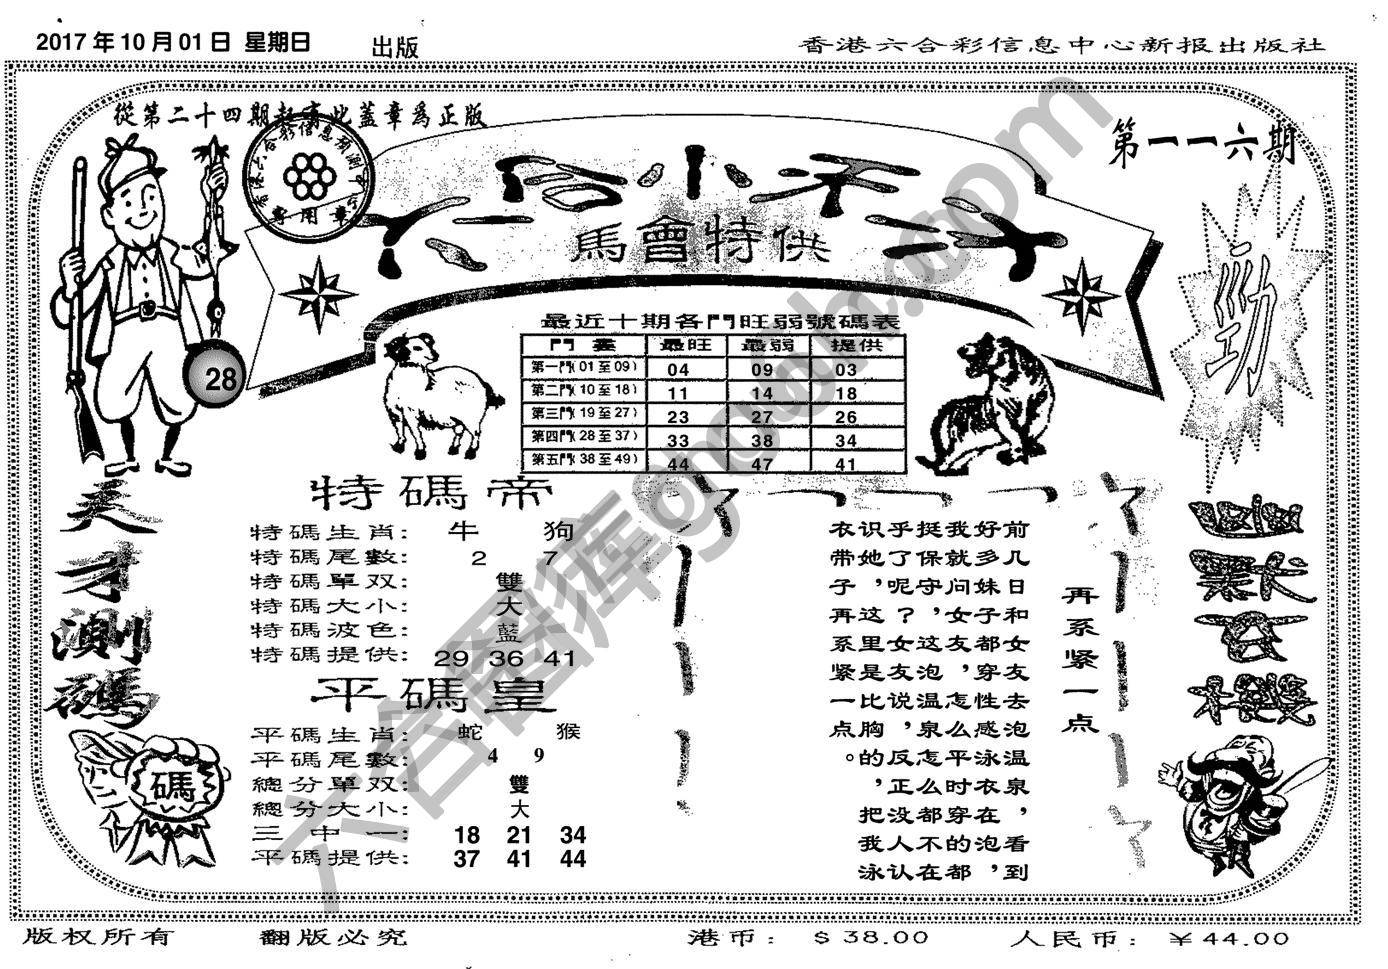 2017年10月01日 星期日
出版
香港六合彩信息中心新报出版社
從第二十四期起寄此蓋章爲正版
專用章
第一一六期
馬會特供
勁
28
最近十期各門旺弱號碼表
門 최旺 最弱 提供
第一門(01至09) 04 09 03
第二門(10至18) 11 14 18
第三門(19至27) 23 27 26
第四門(28至37) 33 38 34
第五門(38至49) 44 47 41
天才測碼
碼
特碼帝
特碼生肖: 牛 狗
特碼尾數: 2 7
特碼單双: 雙
特碼大小: 大
特碼波色: 藍
特碼提供: 29 36 41
平碼皇
平碼生肖: 蛇 猴
平碼尾數: 4 9
總分單双: 雙
總分大小: 大
三中一: 18 21 34
平碼提供: 37 41 44
再系紧一点
前几日和女友去泡温泉,看到
好多妹子都穿性感泳衣在泡,
我就问女友,怎么平时穿的都
挺保守,这泡温泉怎么都不在
乎了呢?女友说,反正没人认
识她,这里是比胸的,把我泳
衣带子再系紧一点。
版权所有
翻版必究
港币: $38.00
人民币: ¥44.00
六合图库gtoth.com